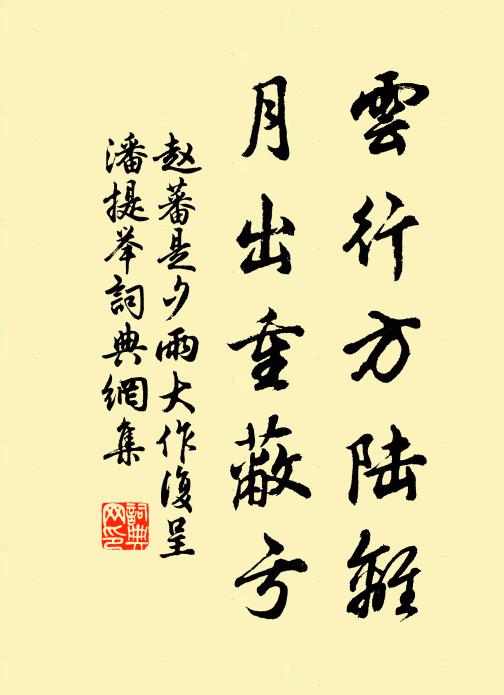 雲行方陆離
月出重蔽亏
赵蕃是夕雨大作復呈
潘提举詞典網集
詞典网印